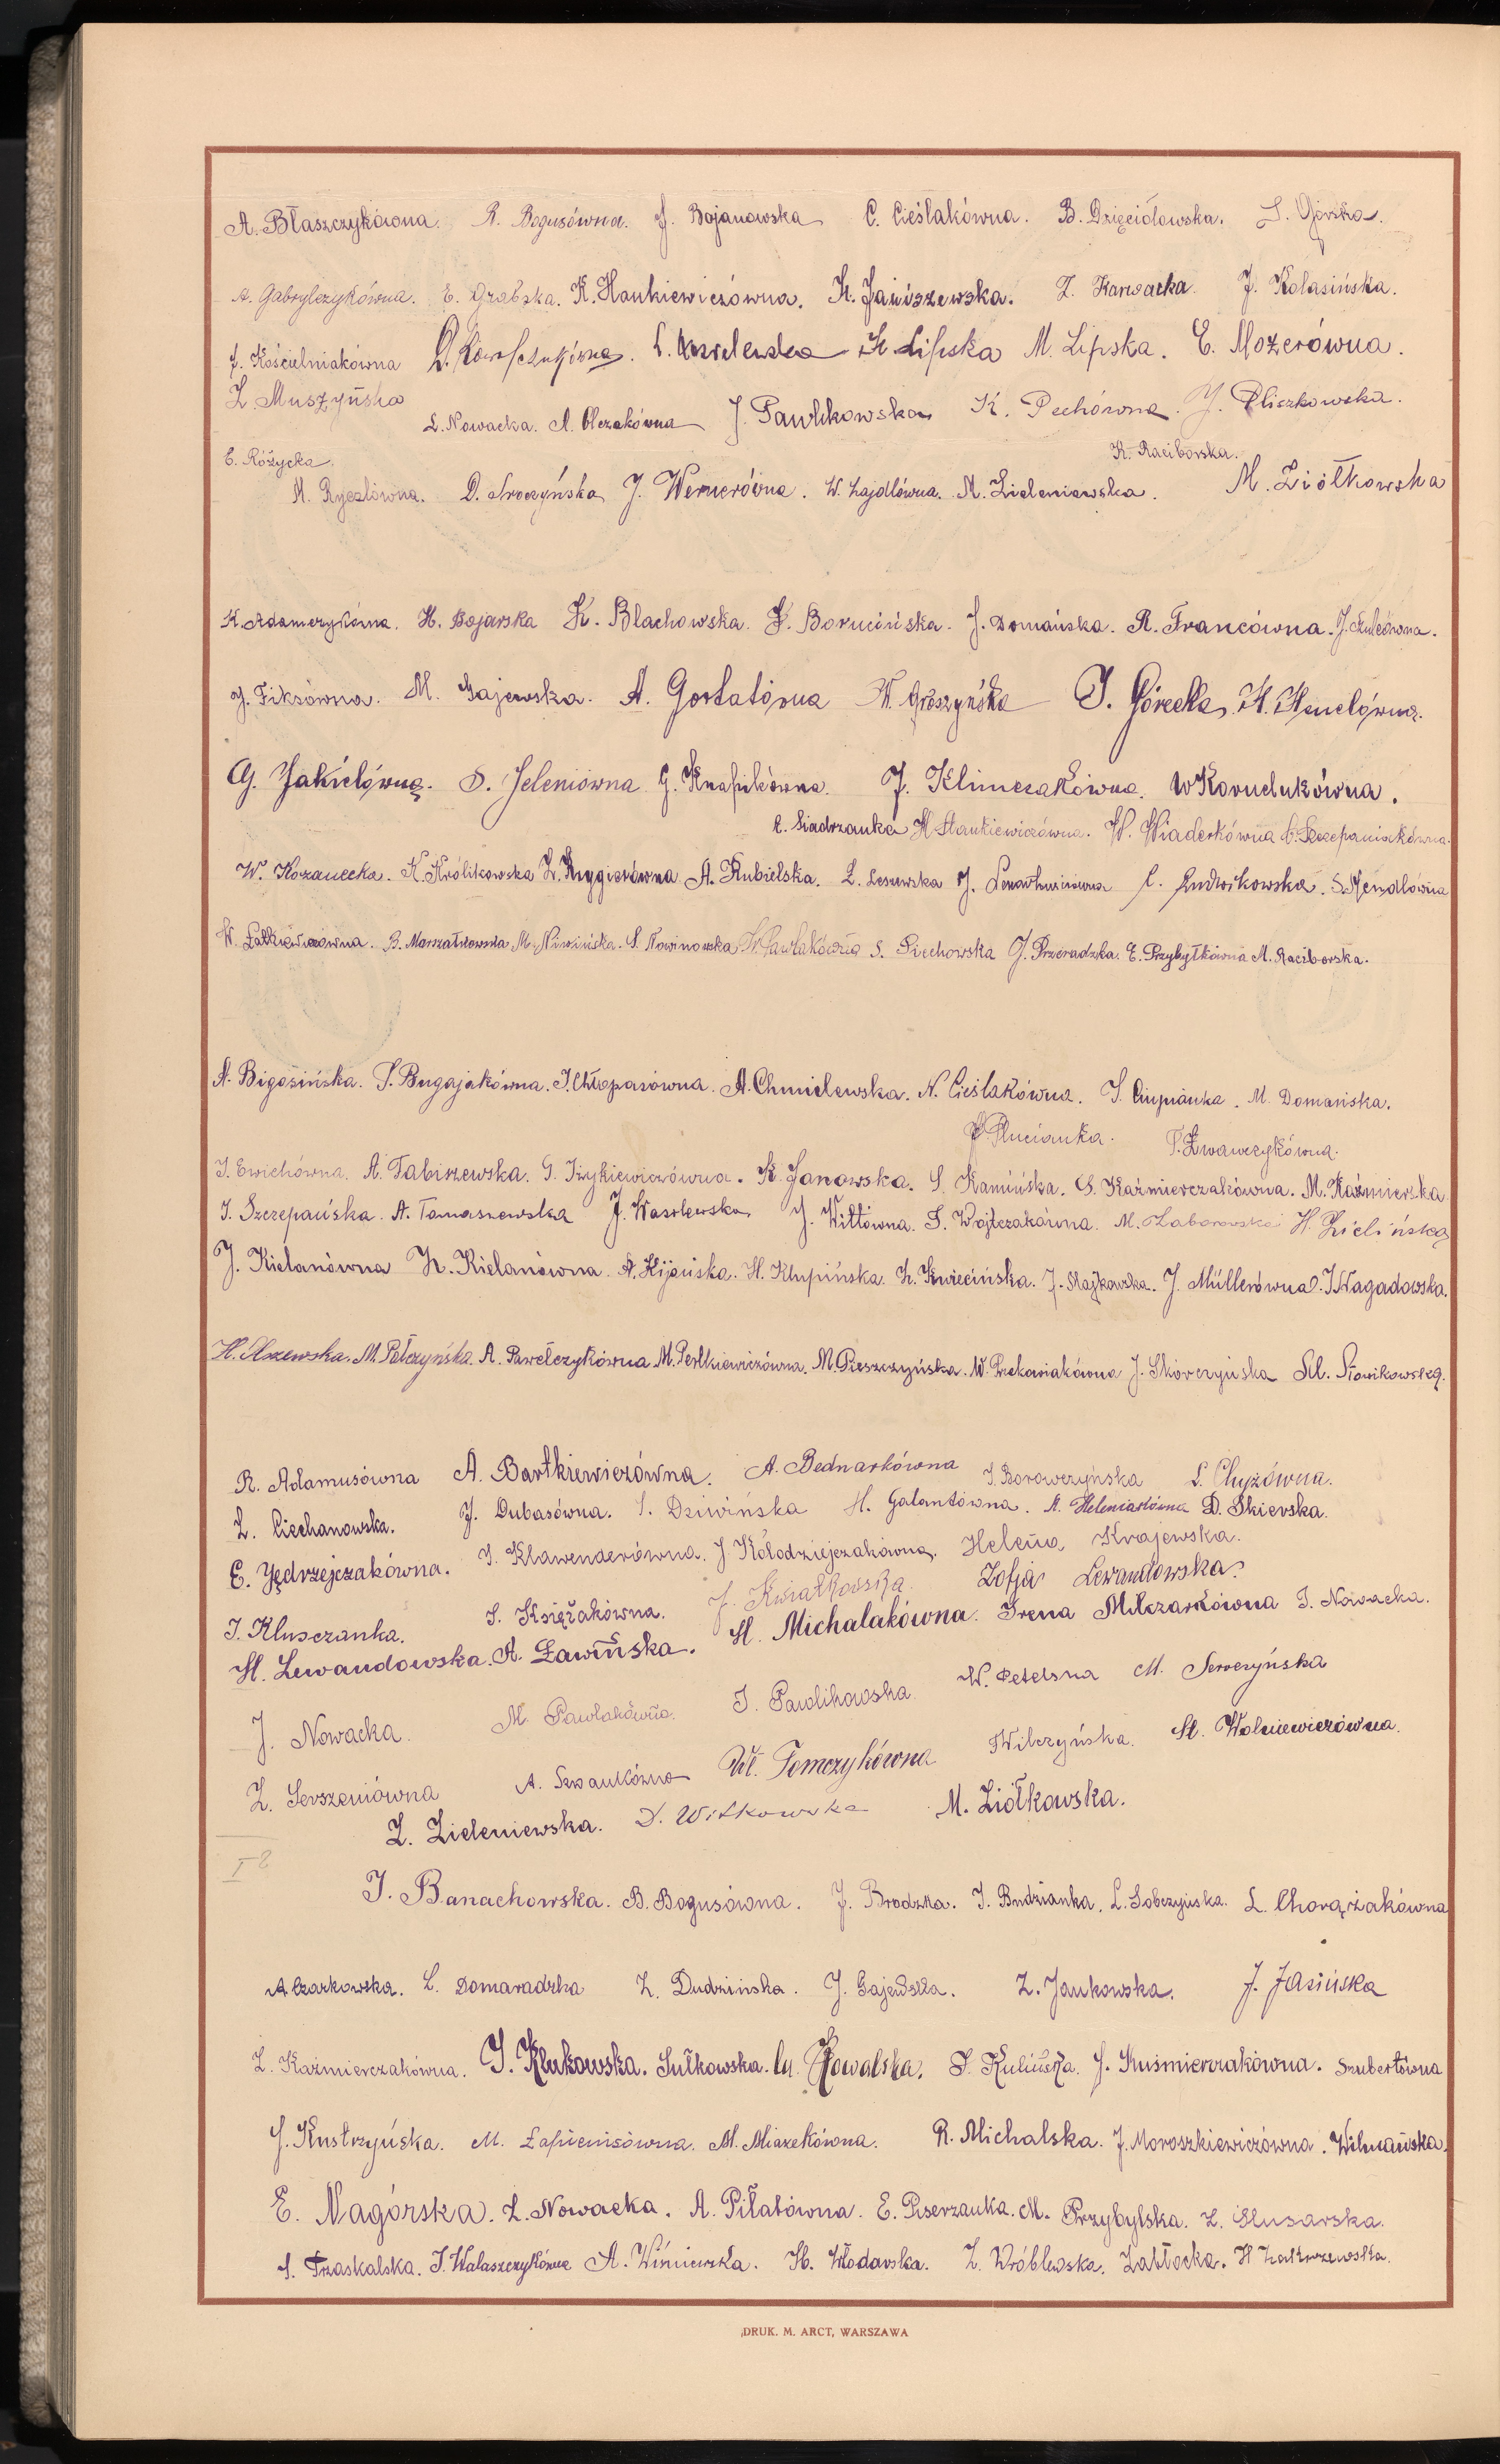 A. Błaszczykówna. R. Bogusówna. J. Bojanowska C. Cieślakówna. B. Dzięciołowska. S. Górska.
A. Gabrylczykówna. E. Grabska. K. Hankiewiczówna. K. Janiszewska. Z. Karwacka. J. Kolasińska.
J. Kościelniakówna M. Lipska. E. Mozerówna.
Z. Muszyńska L. Nowacka. A. Olczakówna J. Pawlikowska K. Pechówna. J. Pliszkowska.
E. Różycka. K. Raciborska.
M. Ryczlówna. D. Sroczyńska J. Wernerówna. W. Zajdlówna. M. Zieleniewska. M. Ziółkowska
K. Adamczykówna. H. Bojarska K. Blachowska. F. Borucińska. J. Domańska. R. Francówna. J. Szulcówna.
J. Fiksówna. M. Gajewska. A. Gortatówna W. Groszyńska J. Górecka, H. Henclówna.
G. Jakielówna. S. Jeleniówna G. Knapikówna. J. Klimczakówna. W Kornelukówna.
C. Siadrzanka H Stankiewiczówna. W. Wiaderkówna C. Szczepaniakówna.
W. Kozanecka. K. Królikowska Z. Krygierówna A. Kubielska. L. Lesewska J. C. Ludwikowska. S. Mendlówna
W. Łatkiewiczówna. B. Marszałkowska M. Niwińska. S. Nowinowska W. Pawlakówna S. Piechowska J. Przeradzka. E. Przybyłkówna M. Raciborska.
A. Bigosińska. S. Bugajakówna. J. Chłopasówna. A. Chmielewska. N. Cieślakówna. J. Ciupianka. M. Domańska.
Plucianka. Iwawczykówna.
J. Ewichówna. A. Fabiszewska. G. Iżykiewiczówna. K. Janowska. S. Kamińska. S. Kaźmierczakówna. M. Kaźmierska
J. Szczepańska. A. Tomaszewska J. Wasilewska J. Wittówna. S. Wojtczakówna. M. Zaborowska H. Zielińska
J. Kielanówna K. Kielanówna. A. Kijańska. H. Klupińska. Z. Kwiecińska. J. Majkowska. J. Müllerówna. J. Nagadowska.
H. Olszewska. M. Pełczyńska. A. Pawełczykówna M. Perlkiewiczówna. M. Pieszczyńska. W. Piekowiakówna J. Skórczyńska St. Słowikowska.
R. Adamusówna A. Bartkiewiczówna. A. Bednarkówna J. Borowczyńska L. Chyżówna.
Z. Ciechanowska. J. Dubasówna. S. Dziwińska H. Galantówna. A. Heleniakówna D. Skierska.
E. Jędrzejczakówna. J. Klawenderówna. J. Kołodziejczakówna. Helena Krajewska.
J. Klusczanka. S. Księżakówna. J. Kwiatkowska. Zofja Lewandowska.
H. Lewandowska. A. Ławińska. H. Michalakówna. Irena Milczarkówna J. Nowacka.
J. Nowacka. M. Pawlakówna. J. Pawlikowska W. Petelska M. Seroczyńska
Z. Serszeniówna A. Szwankówna Wł. Tomczykówna Wilczyńska. St. Wolniewiczówna.
Z. Zieleniewska. D. Witkowska M. Ziółkowska.
I
J. Banachowska. B. Bogusówna. J. Brodzka. J. Budzianka. L. Sobczyńska. L. Chorążakówna
A Czarkowska. C. Domaradzka Z. Dudzińska. J. Gajewska. Z. Jankowska. J. Jasińska
Z. Kaźmierczakówna. J. Klukowska. Sułkowska. Kowalska. S. Kulińska. J. Kuśmierczakówna. Szubertówna
J. Kustrzyńska. M. Łapienisówna. M. Miazekówna. R. Michalska. J. Moroszkiewiczówna. Wilmańska.
E. Nagórska. L. Nowacka. A. Piłatówna. E. Piserzanka. M. Przybylska. Z. Slusarska.
S. Traskalska. J. Walaszczykówna A. Winiewska. H. Włodarska. Z. Wróblewska. Zabłocka. H Zakrzewska.
DRUK. M. ARCT, WARSZAWA